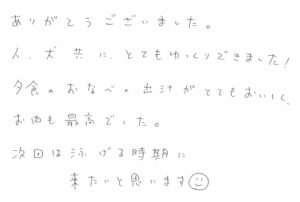 ありがとうございました。
人、犬共に、とてもゆっくりできました！
夕食のおなべの出汁がとてもおいしく、
お肉も最高でした。
次回は泳げる時期に
来たいと思います